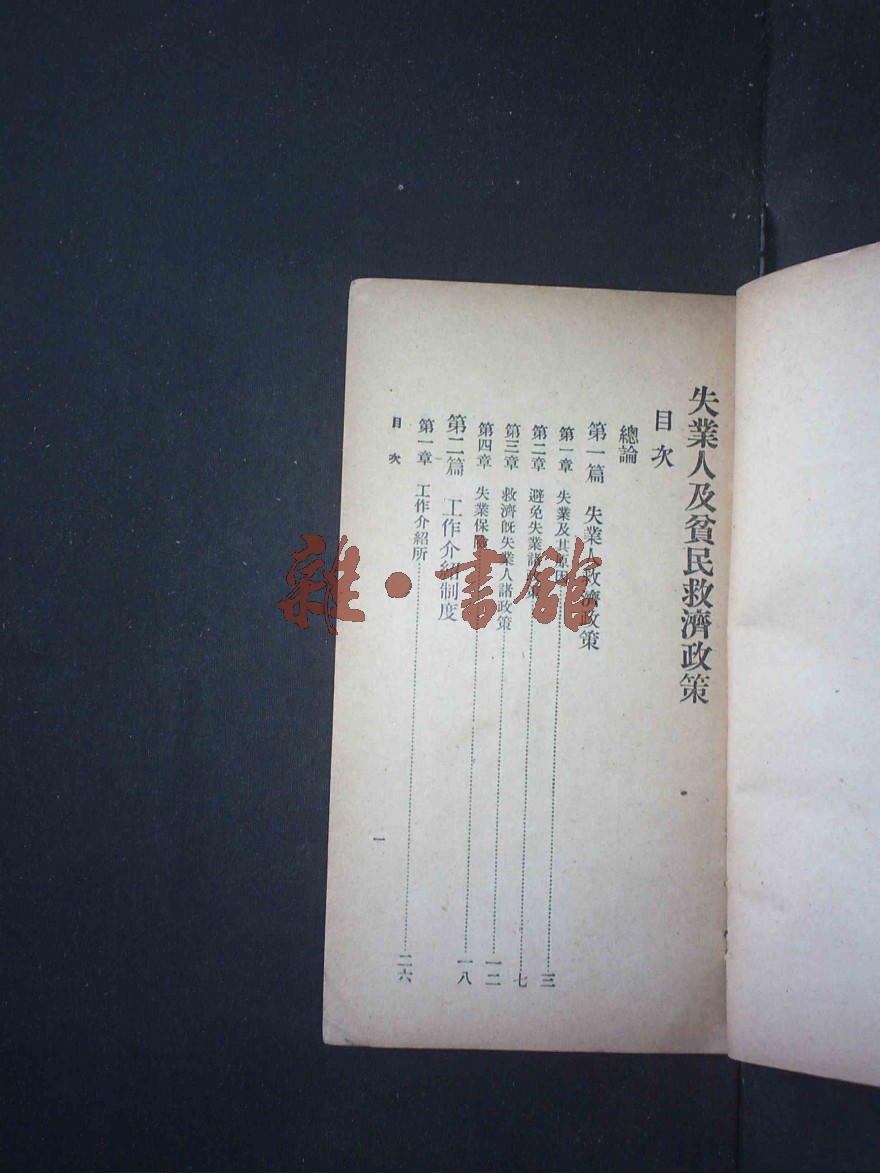 失業人及貧民救濟政策
目次
總論
第一篇 失業人救濟政策
第一章 失業及其原因 三
第二章 避免失業諸 七
第三章 救濟旣失業人諸政策 一二
第四章 失業保 一八
第二篇 工作介紹制度
第一章 工作介紹所 二六
目次 一
雜·書館